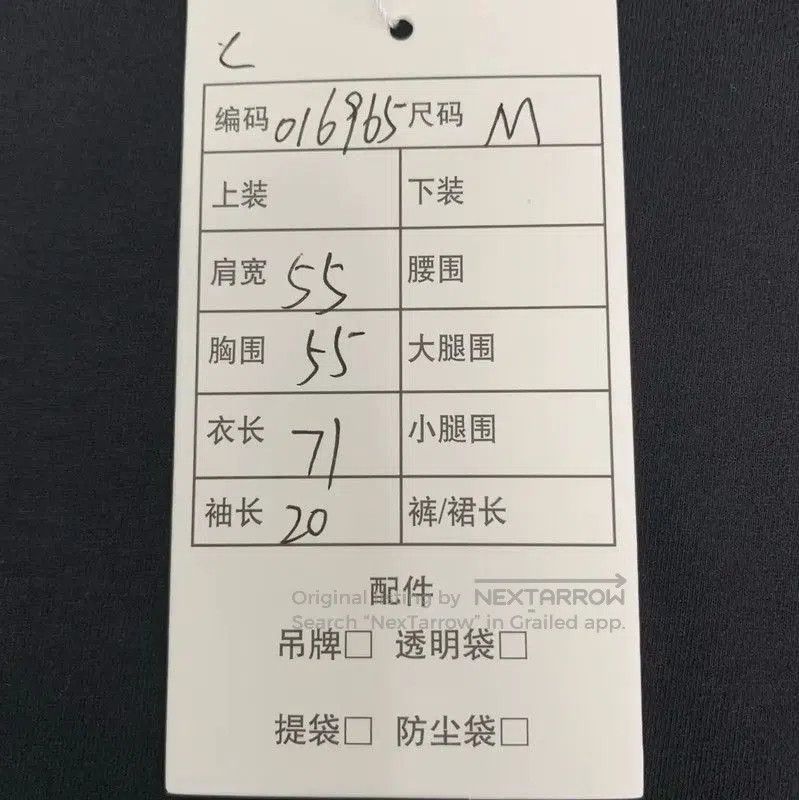 编码 016965 尺码 M
上装 下装
肩宽 55 腰围
胸围 55 大腿围
衣长 71 小腿围
袖长 20 裤/裙长
配件
Original listing by NEXTARROW
Search "NexTarrow" in Grailed app.
吊牌□ 透明袋□
提袋□ 防尘袋□